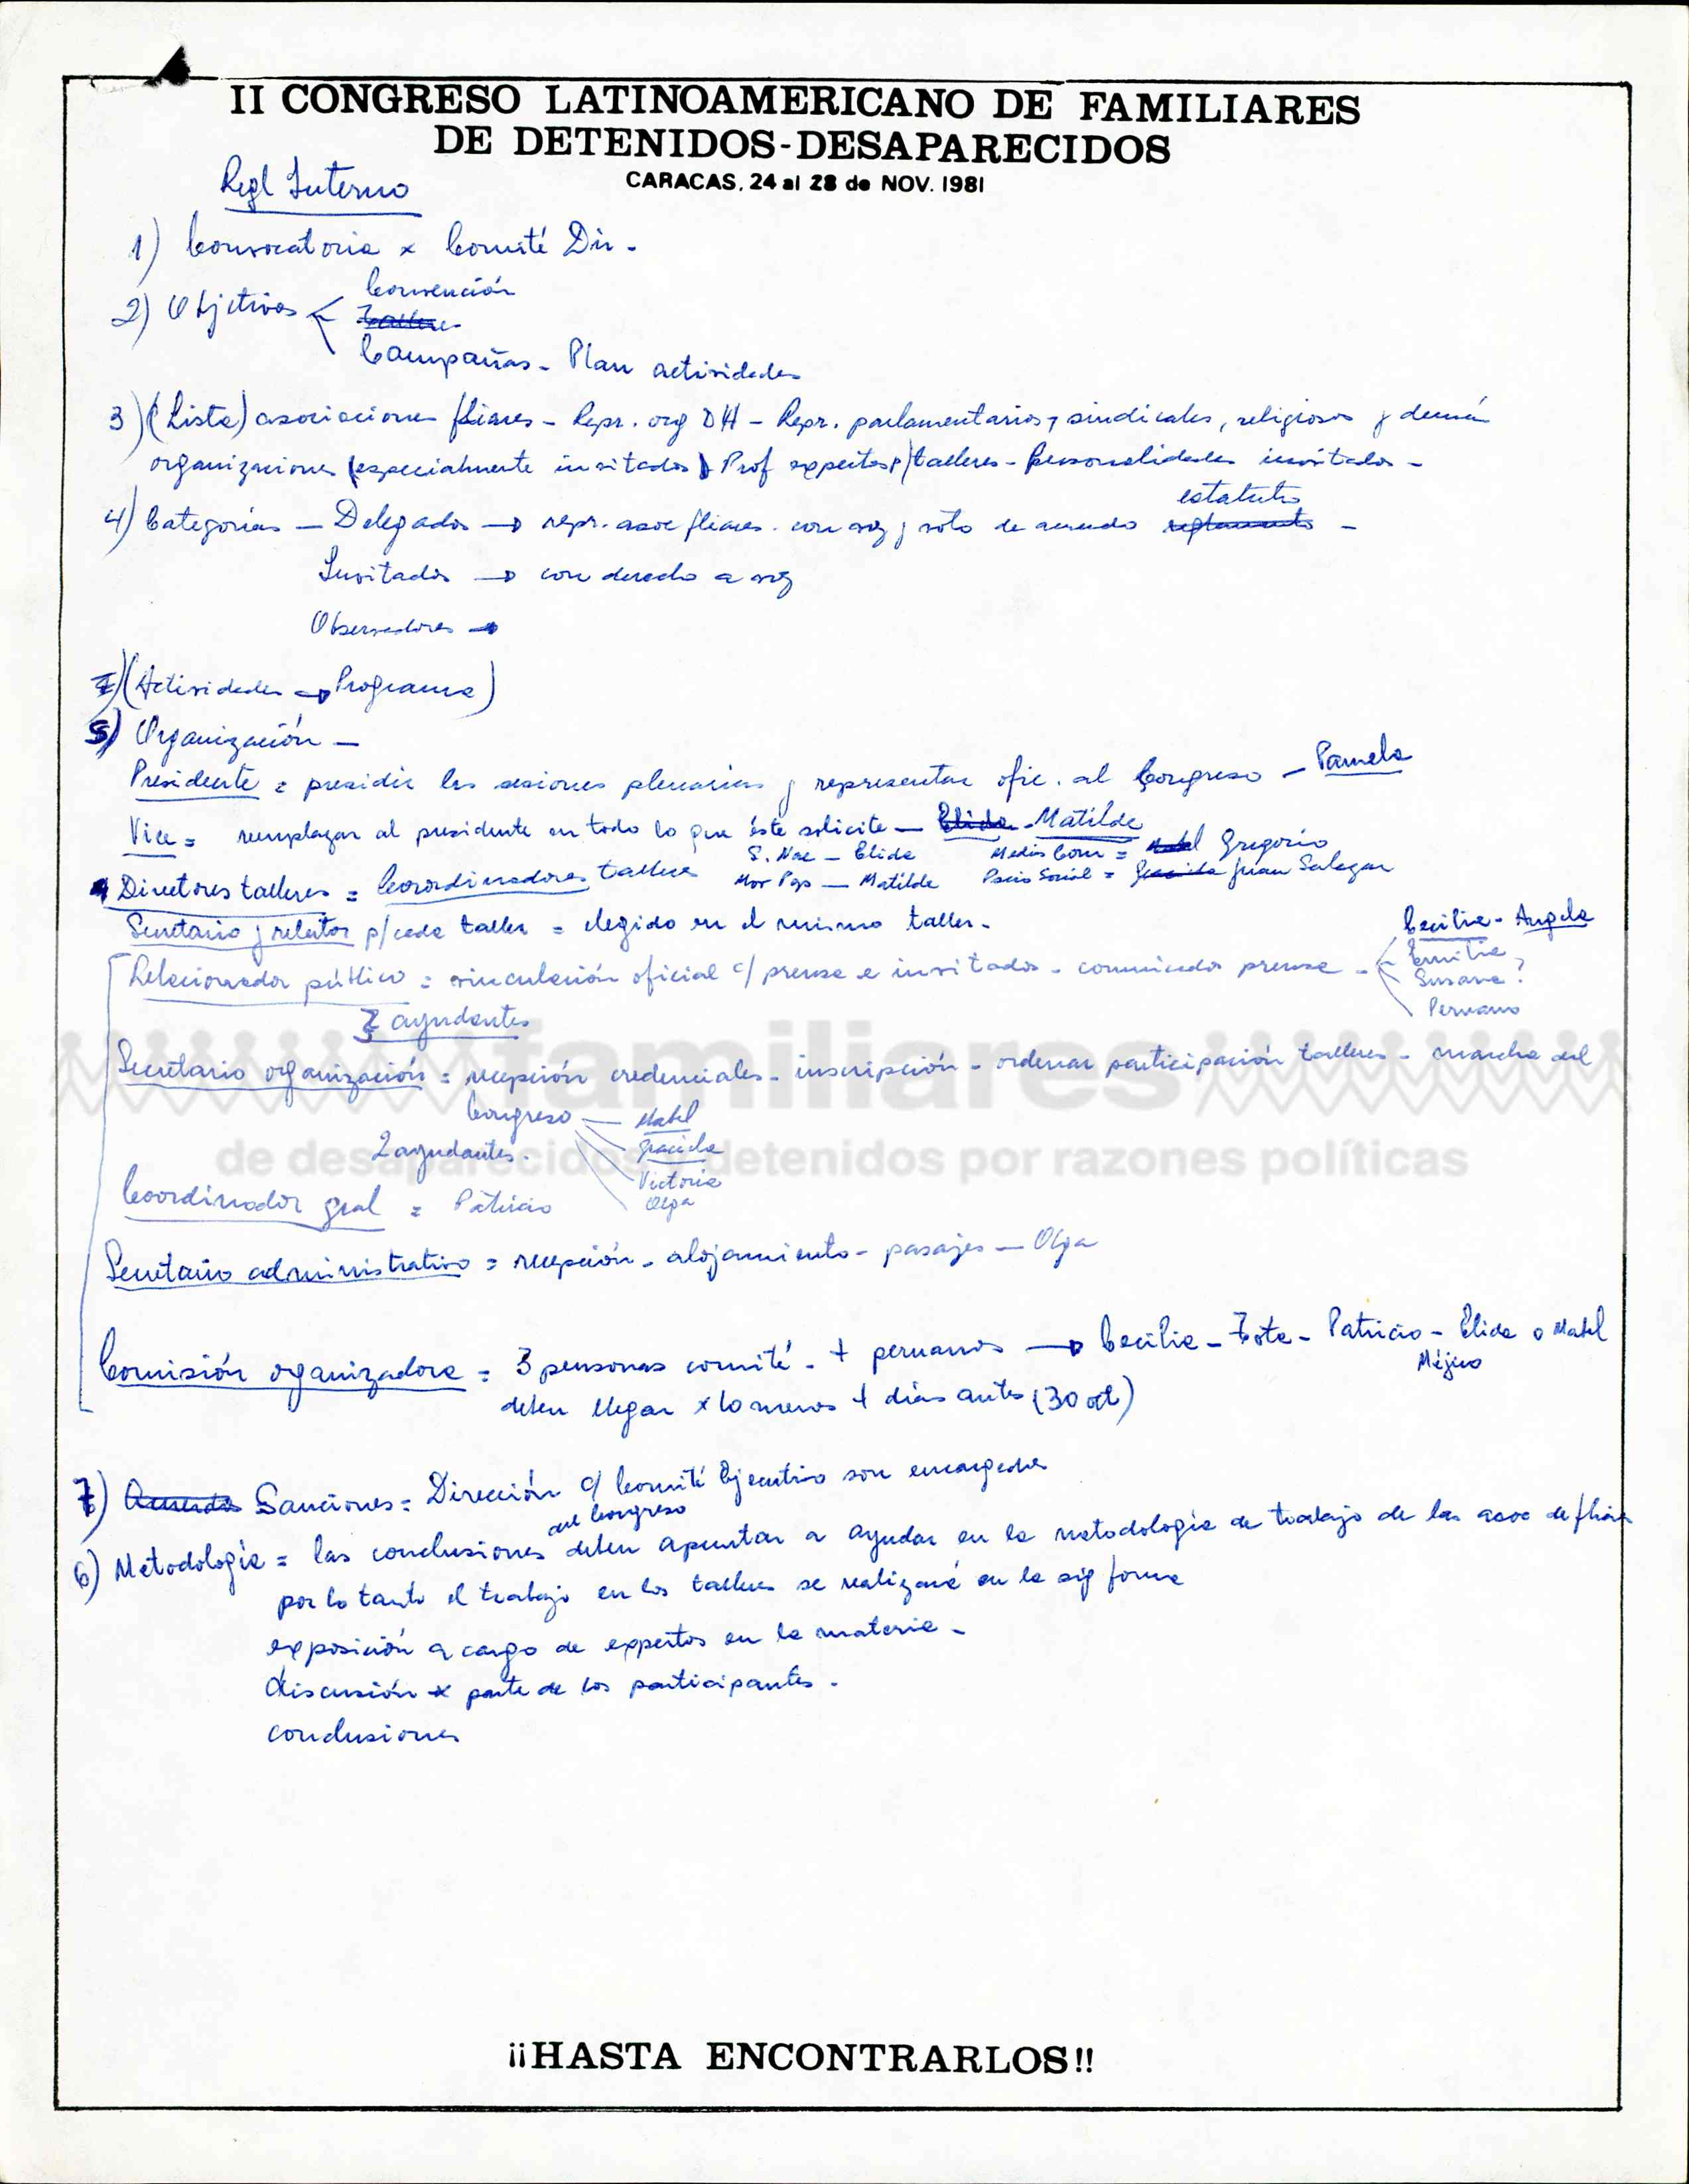 II CONGRESO LATINOAMERICANO DE FAMILIARES
DE DETENIDOS-DESAPARECIDOS
CARACAS, 24 al 28 de NOV. 1981
Regl Interno
1) Convocatoria x Comité Dir -
2) Objetivos
Convención
Talleres
Campañas - Plan actividades
3) (Lista) asociaciones fliares - Repr. org DH - Repr. parlamentarios, sindicales, religiosos y demás
organizaciones (especialmente invitados) Prof expertos p/talleres - Personalidades invitadas -
estatuto
4) Categorías - Delegados → repr. asoc fliares. con voz y voto de acuerdo reglamento -
Invitados → con derecho a voz
Observadores →
(Actividades → Programa)
5) Organización -
Presidente = presidir las sesiones plenarias y representar ofic. al Congreso - Pamela
Vice = reemplazar al presidente en todo lo que éste solicite - Elida - Matilde
S. Nac - Elida Medios Com = Mabel Gregorio
Directores talleres = Coordinadores talleres Matilde Psico Social = Graciela Juan Salazar
Secretario y relator p/cada taller = elegido en el mismo taller -
Cecilia - Angela
Relacionador público = vinculación oficial c/ prensa e invitados - comunicados prensa - Emilia
Susana?
Peruano
2 ayudantes
familiares
Secretario organización = recepción credenciales - inscripción - ordenar participación talleres - marcha del
Congreso - Mabel
2 ayudantes. Graciela
de desaparecidos y detenidos por razones políticas
Victoria
Coordinador gral = Patricio Olga
Secretario administrativo = recepción - alojamiento - pasajes - Olga
Comisión organizadora = 3 personas comité - + peruanos → Cecilia - Tota - Patricio - Elida o Mabel
Méjico
deben llegar x lo menos 4 días antes (30 oct)
7) Acuerdos Sanciones = Dirección c/ Comité Ejecutivo son encargados
del Congreso
6) Metodología = las conclusiones deben apuntar a ayudar en la metodología de trabajo de las asoc de fliares
por lo tanto el trabajo en los talleres se realizará en la sig forma
exposición a cargo de expertos en la materia -
discusión x parte de los participantes.
conclusiones
¡¡HASTA ENCONTRARLOS!!